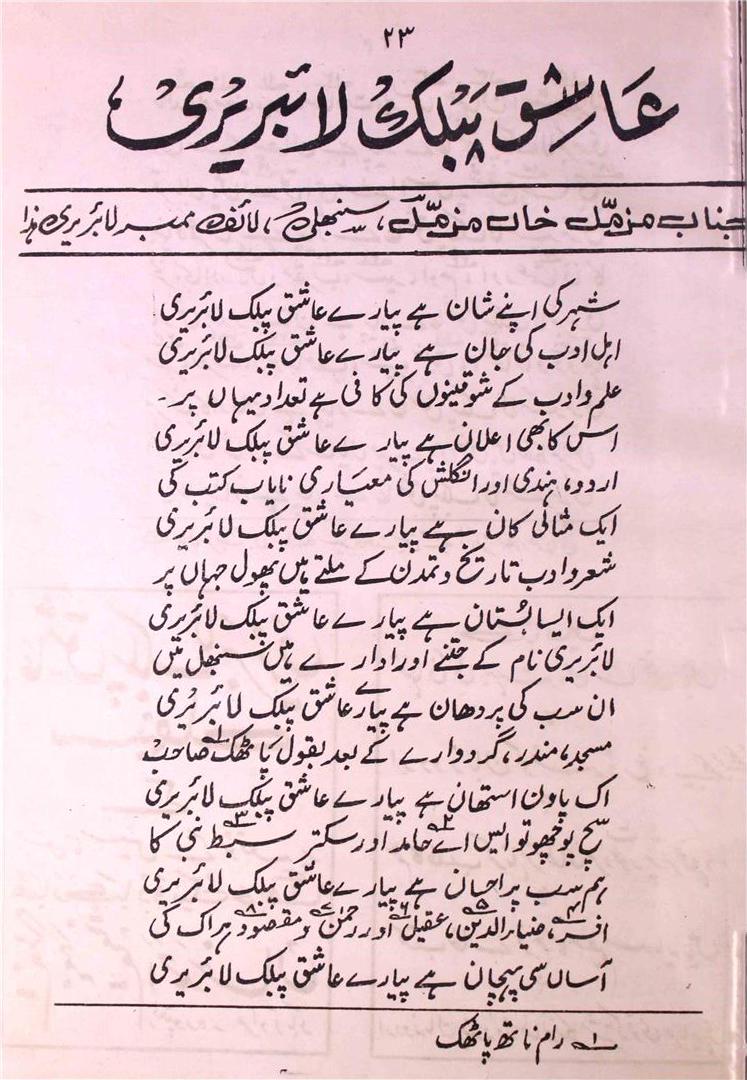 ۲۳
عاشق پبلک لائبریری
جناب مزمّل خاں مزمّل، سنبھلی، لائف ممبر لائبریری ہٰذا
شہر کی اپنے شان ہے پیارے عاشق پبلک لائبریری
اہل ادب کی جان ہے پیارے عاشق پبلک لائبریری
علم و ادب کے شوقینوں کی کافی ہے تعداد یہاں پر۔
اس کا بھی اعلان ہے پیارے عاشق پبلک لائبریری
اردو، ہندی اور انگلش کی معیاری نایاب کتب کی
ایک مثالی کان ہے پیارے عاشق پبلک لائبریری
شعر و ادب تاریخ و تمدن کے ملتے ہیں پھول جہاں پر
ایک ایسا بُستان ہے پیارے عاشق پبلک لائبریری
لائبریری نام کے جتنے اور ادارے ہیں سنبھل میں
ان سب کی پردھان ہے پیارے عاشق پبلک لائبریری
مسجد، مندر، گردوارے کے بعد بقول پاٹھک۱ صاحب
اک پاون استھان ہے پیارے عاشق پبلک لائبریری
سچ پوچھو تو ایس اے حامد۲ اور سکتر سبط نبی۳ کا
ہم سب پر احسان ہے پیارے عاشق پبلک لائبریری
افسر۴، ضیاء الدین۵، عقیل۶ اور رحمٰن۷ و مقصود۸ ہر اک کی
آساں سی پہچان ہے پیارے عاشق پبلک لائبریری
۱ رام ناتھ پاٹھک